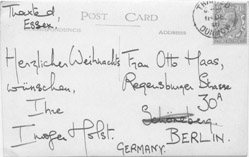 Thaxted,
Essex.
POST CARD
ADDRESS
Herzlichen Weihnachts
wünschen,
Ihre
Imogen Holst.
Frau Otto Haas,
Regensburger Strasse
30A
Schöneberg
BERLIN.
GERMANY.